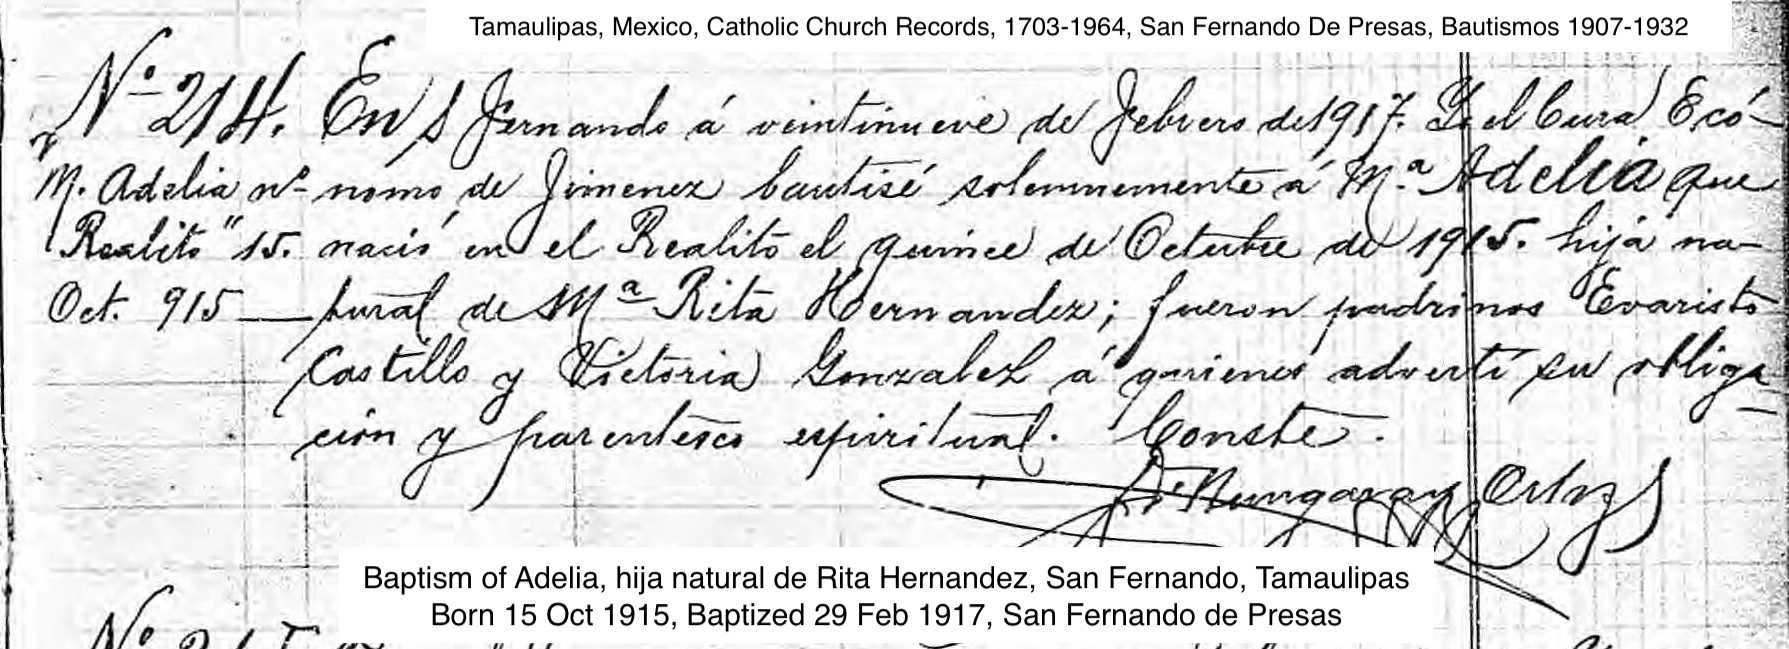 Tamaulipas, Mexico, Catholic Church Records, 1703-1964, San Fernando De Presas, Bautismos 1907-1932
Nº 214. En S Fernando á veintinueve de Febrero de 1917. Yo el Cura Ecó-
M. Adelia nª nomo de Jimenez bautisé solemnemente á M.ª Adelia que
Realito " 15. nació en el Realito el quince de Octubre de 1915. hija na-
Oct. 915 — tural de Mª Rita Hernandez; fueron padrinos Evaristo
Castillo y Victoria Gonzalez á quienes advertí su obliga-
ción y parentesco espiritual. Conste.
Mungaray Ortiz
Baptism of Adelia, hija natural de Rita Hernandez, San Fernando, Tamaulipas
Born 15 Oct 1915, Baptized 29 Feb 1917, San Fernando de Presas
Nº 215